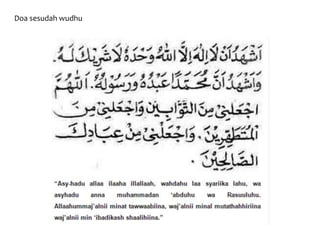 Doa sesudah wudhu
اَشْهَدُ اَنْ لَا اِلٰهَ اِلَّا اللهُ وَحْدَهُ لَا شَرِيْكَ لَهُ.
وَاَشْهَدُ اَنَّ مُحَمَّدًا عَبْدُهُ وَرَسُوْلُهُ. اَللّٰهُمَّ
اجْعَلْنِيْ مِنَ التَّوَّابِيْنَ وَاجْعَلْنِيْ مِنَ
الْمُتَطَهِّرِيْنَ. وَاجْعَلْنِيْ مِنْ عِبَادِكَ
الصَّالِحِيْنَ.
"Asy-hadu allaa ilaaha illallaah, wahdahu laa syariika lahu, wa
asyhadu anna muhammadan 'abduhu wa Rasuuluhu.
Allaahummaj'alnii minat tawwaabiina, waj'alnii minal mutathahhiriina
waj'alnii min 'ibadikash shaalihiina."